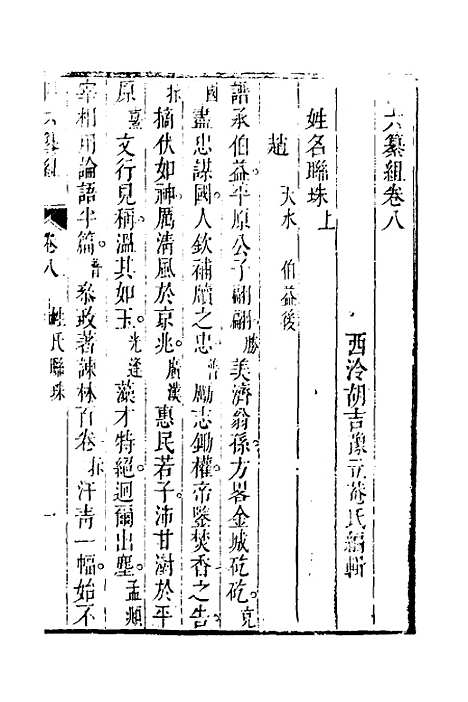 六纂組卷八
西泠胡吉豫立菴氏編輯
姓名聯珠上
趙 天水 伯益後
譜承伯益平原公子翩翩勝美濟翁孫方畧金城矻矻充
國盡忠謀國人欽補牘之忠普勵志鋤權帝鑒焚香之告
抃摘伏如神厲清風於京兆廣漢惠民若子沛甘澍於平
原熹文行見稱溫其如玉光逢藻才特絕迥爾出塵孟頫
宰相用論語半篇普叅政著諫林百卷抃汗青一幅始不
六纂組 卷八 姓氏聯珠 一